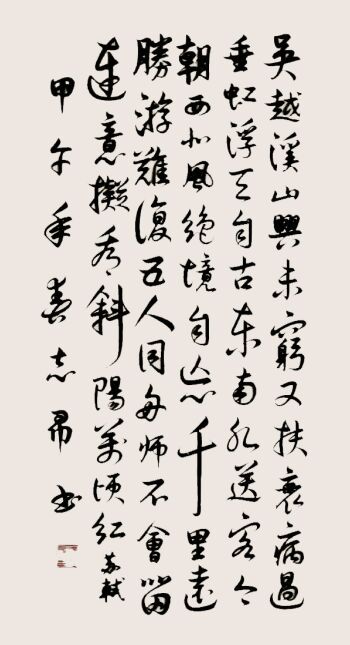 吳越溪山興未窮又扶衰病過
垂虹浮天自古东南水送客今
朝西北風絕境自忘千里遠
勝游難復五人同舟師不會留
連意擬看斜陽萬頃紅 蘇軾
甲午年春志昂书